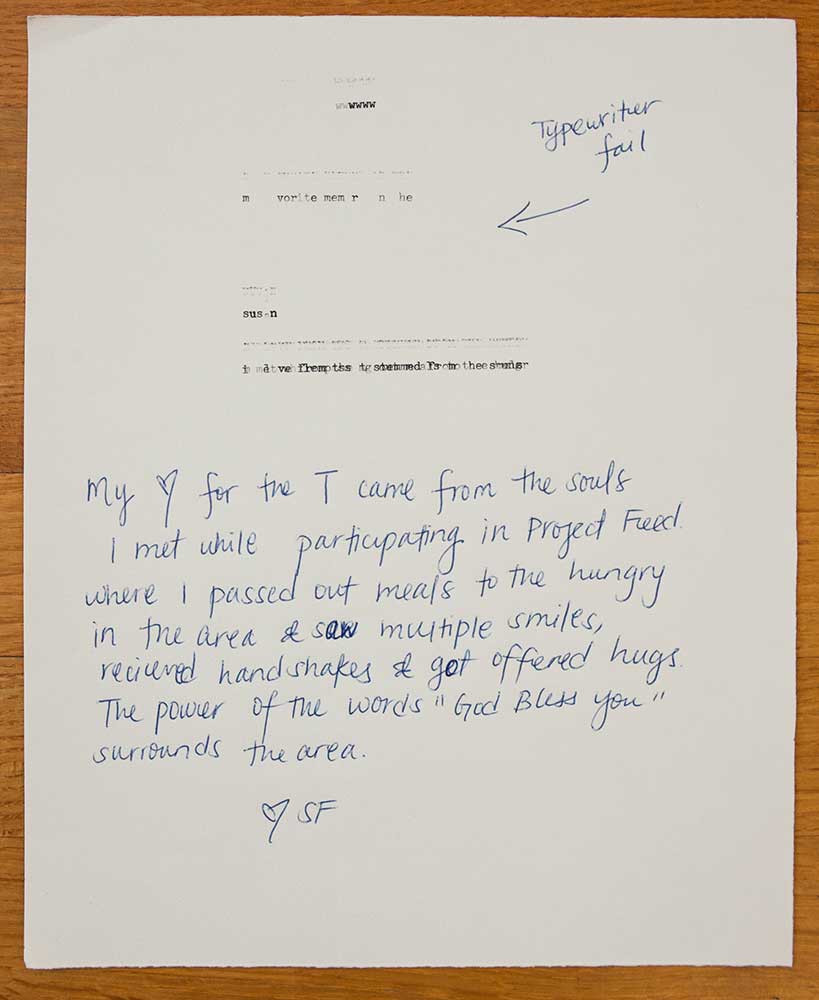 wwwwww
Typewriter
fail
m vorite mem r n he
sus-n
My ♡ for the T came from the souls
I met while participating in Project Feed
where I passed out meals to the hungry
in the area & saw multiple smiles,
recieved handshakes & got offered hugs.
The power of the words "God Bless you"
surrounds the area.
♡ SF